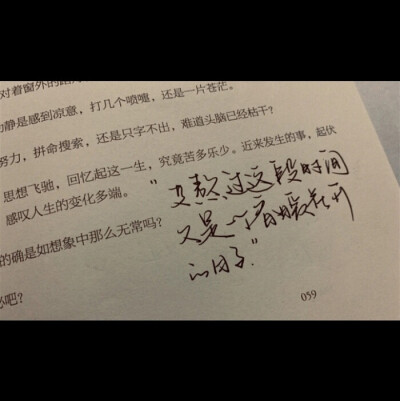 对着窗外的
静是感到凉意，打几个喷嚏，还是一片苍茫。
努力，拼命搜索，还是只字不出，难道头脑已经枯干？
思想飞驰，回忆起这一生，究竟苦多乐少。近来发生的事，起伏
感叹人生的变化多端。
的确是如想象中那么无常吗？
吧？
“熬过这段时间
又是一个春暖花开
的日子”
059